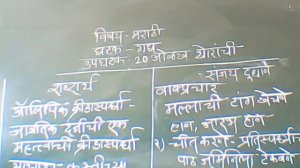 विषय- मराठी
घटक- गद्य
उपघटक- 20 ओळख थोरांची
- संजय दुधाणे
शब्दार्थ
ऑलिंपिक क्रीडास्पर्धा -
जागतिक दर्जाची एक
महत्वाची क्रीडास्पर्धा
वाक्प्रचार
मल्लाची टांग खेचणे
१) चीत करणे - प्रतिस्पर्ध्या-
पाठ जमिनीला टेकवणे